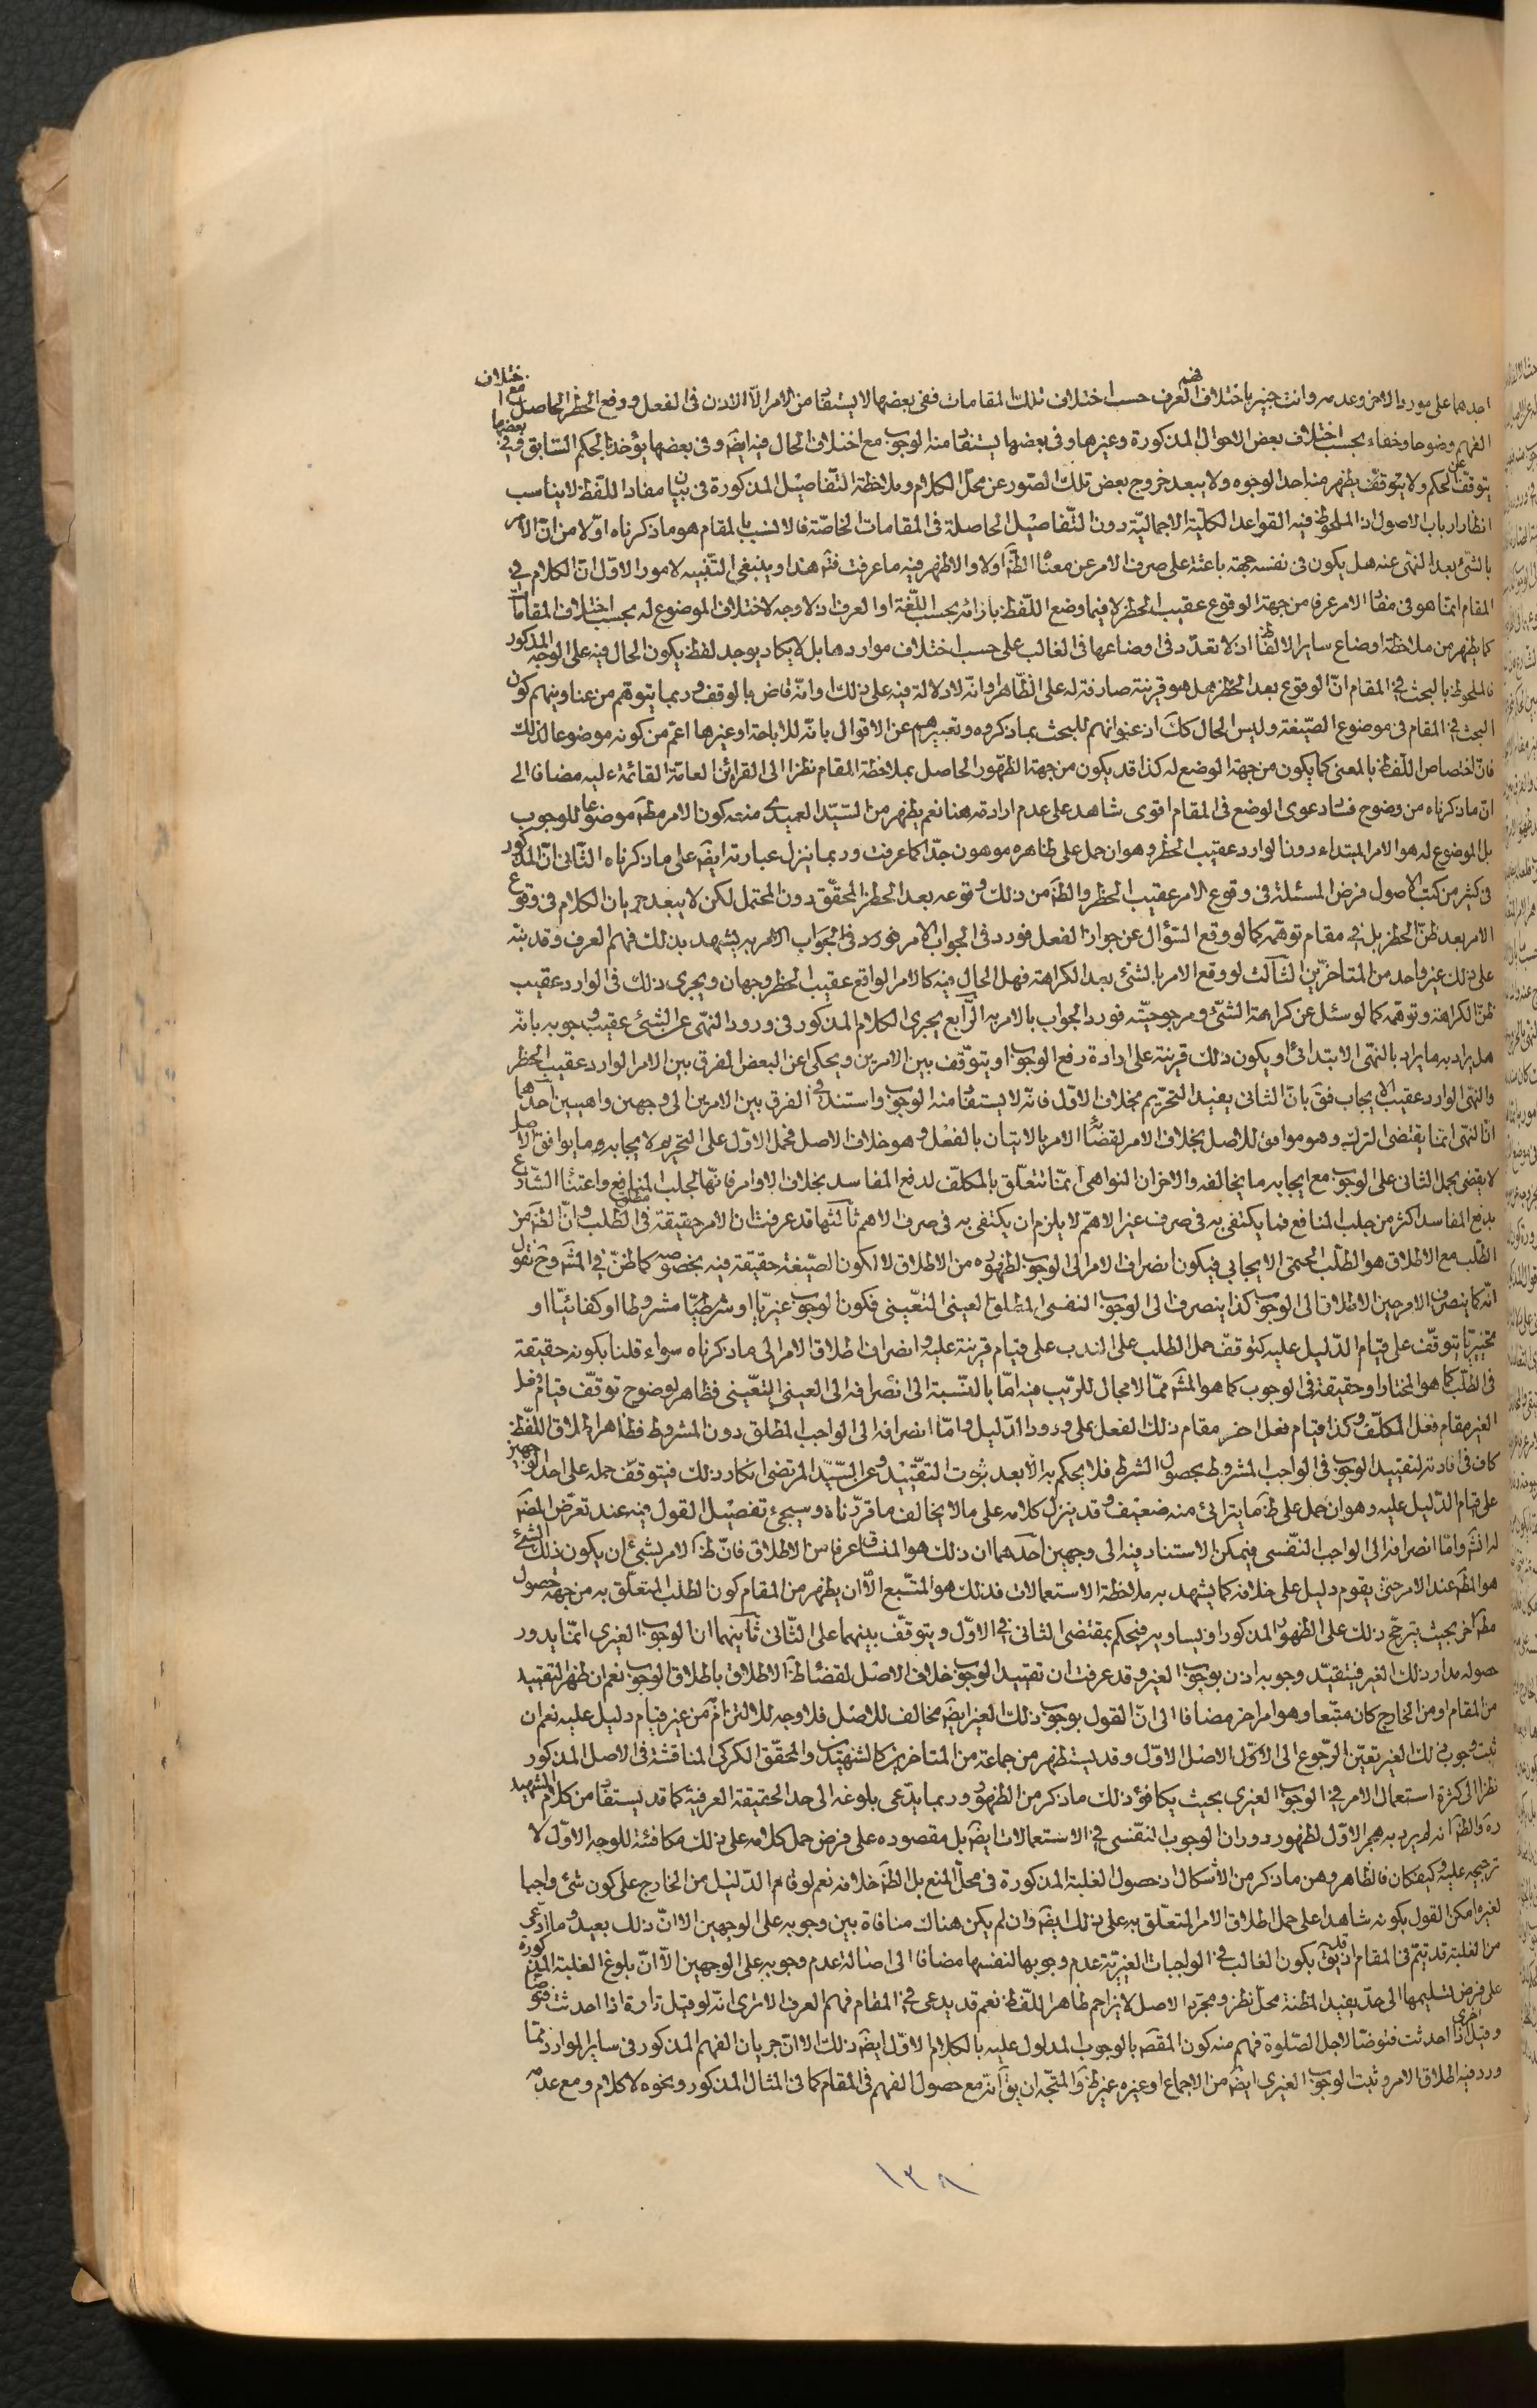 احدهما على مورد الاخر وعدمه وانت خبير باختلاف فهم العرف حسب اختلاف تلك المقامات ففى بعضها لا يستفاد من الامر الا الاذن فى الفعل ورفع الحظر الحاصل مع اختلاف
الفهم وضوحا وخفاء بحسب اختلاف بعض الاحوال المذكورة وغيرها وفى بعضها يستفاد منه الوجوب مع اختلاف الحال فيه ايضَ وفى بعضها يؤخذ بالحكم السّابق وفي بعضها
يتوقف عن الحكم ولا يتوقّف يظهر منه احد الوجوه ولا يبعد خروج بعض تلك الصّور عن محلّ الكلام وملاحظة التّفاصيل المذكورة فى بيان مفاد اللّفظ لا يناسب
انظار ارباب الاصول اذ الملحوظ فيه القواعد الكليّة الاجماليّة دون التّفاصيل الحاصلة فى المقامات الخاصّة فالانسب بالمقام هو ما ذكرناه اوّلا من انّ الامر
بالشّئ بعد النّهى عنه هل يكون فى نفسه جهة باعثة على صرف الامر عن معناه الظَّ اولا والاظهر فيه ما عرفت ثمَّ هذا وينبغى التّنبيه لامور الاوّل انّ الكلام في
المقام انّما هو فى مفاد الامر عرفا من جهة الوقوع عقيب الحظر لا فيما وضع اللّفظ بازائه بحسب اللّغة او العرف اذ لا وجه لاختلاف الموضوع له بحسب اختلاف المقامات
كما يظهر من ملاحظة اوضاع ساير الالفاظ اذ لا تعدّد فى اوضاعها فى الغالب على حسب اختلاف مواردها بل لا يكاد يوجد لفظ يكون الحال فيه على الوجه المذكور
فالملحوظ بالبحث في المقام انّ الوقوع بعد الحظر هل هو قرينة صارفة له على الظّاهر او انّه لا دلالة فيه على ذلك او انّه قاض بالوقف وربما يتوهّم من عناوينهم كون
البحث في المقام فى موضوع الصّيغة وليس الحال ككَ اذ عنوانهم للبحث بما ذكروه وتعبيرهم عن الاقوال بانّه للاباحة او غيرها اعمّ من كونه موضوعا لذلك
فانّ اختصاص اللّفظ بالمعنى كما يكون من جهة الوضع له كذا قد يكون من جهة الظّهور الحاصل بملاحظة المقام نظرا الى القرائن العامّة القائمة عليه مضافا الى
انّ ما ذكرناه من وضوح فساد دعوى الوضع فى المقام اقوى شاهد على عدم ارادته هنا نعم يظهر من السّيّد العميدى منعه كون الامر مطَ موضوعا للوجوب
بل الموضوع له هو الامر المبتداء دون الوارد عقيب الحظر وهو ان حمل على ظاهره موهون جدّا كما عرفت وربما ينزل عبارته ايضَ على ما ذكرناه الثّانى انّ المذكور
فى كثير من كتب الاصول فرض المسئلة فى وقوع الامر عقيب الحظر والظَ من ذلك وقوعه بعد الحظر المحقّق دون المحتمل لكن لا يبعد جريان الكلام فى وقوع
الامر بعد ظنّ الحظر بل في مقام توهّمه كما لو وقع السّؤال عن جواز الفعل فورد فى الجواب الامر به يشهد بذلك فهم العرف وقد نبّه
على ذلك غير واحد من المتاخّرين الثّالث لو وقع الامر بالشّئ بعد الكراهة فهل الحال فيه كالامر الواقع عقيب الحظر وجهان ويجرى ذلك فى الوارد عقيب
ظنّ الكراهة وتوهّمه كما لو سئل عن كراهة الشّئ ومرجوحيّته فورد الجواب بالامر به الرّابع يجرى الكلام المذكور فى ورود النّهى عن الشّئ عقيب وجوبه بانّه
هل يراد به ما يراد بالنّهى الابتدائى او يكون ذلك قرينة على ارادة رفع الوجوب او يتوقّف بين الامرين ويحكى عن البعض الفرق بين الامر الوارد عقيب الحظر
والنّهى الوارد عقيب الايجاب فقَ بانّ الثانى يفيد التحريم بخلاف الاوّل فانّه لا يستفاد منه الوجوب واستند فى الفرق بين الامرين الى وجهين واهيين احدهما
انّ النّهى انّما يقتضى الترك وهو موافق للاصل بخلاف الامر لقضائه الامر بالاتيان بالفعل وهو خلاف الاصل فحمل الاوّل على التحريم لايجابه ما يوافق الاصل
لا يقضى بحمل الثانى على الوجوب مع ايجابه ما يخالفه والاخر انّ النواهى انّما تتعلّق بالمكلّف لدفع المفاسد بخلاف الاوامر فانّها لجلب المنافع واعتناء الشّارع
بدفع المفاسد اكثر من جلب المنافع فما يكتفى به فى صرف غير الاهمّ لا يلزم ان يكتفى به فى صرف الاهمّ ثالثها قد عرفت انّ الامر حقيقة فى مطلق الطّلب وانّ الظَ من
الطّلب مع الاطلاق هو الطّلب الحتمى الايجابي فيكون انصراف الامر الى الوجوب لظهوره من الاطلاق لا لكون الصّيغة حقيقة فيه بخصوصه كما ظنّ في المشهَ وحَ نقول
انّه كما ينصرف الامر حين الاطلاق الى الوجوب كذا ينصرف الى الوجوب النفسى المطلق العينى التعّيينى فكون الوجوب غيريّا او شرطيّا مشروطا او كفائيّا او
تخييريّا يتوقّف على قيام الدّليل عليه كتوقّف حمل الطلب على الندب على قيام قرينة عليه وانصراف اطلاق الامر الى ما ذكرناه سواء قلنا بكونه حقيقة
فى الطّلب كما هو المختار او حقيقة فى الوجوب كما هو المشهَ ممّا لا مجال للرّيب فيه امّا بالنّسبة الى انصرافه الى العينى التعّيينى فظاهر لوضوح توقّف قيام فعل
الغير مقام فعل المكلّف وكذا قيام فعل اخر مقام ذلك الفعل على ورود الدّليل وامّا انصرافه الى الواجب المطلق دون المشروط فظاهر اطلاق اللّفظ
كاف فى افادته لتقييد الوجوب فى الواجب المشروط بحصول الشرط فلا يحكم به الّا بعد ثبوت التقّييد وعن السّيّد المرتضى انكار ذلك فيتوقّف حمله على احد الوجهين
على قيام الدّليل عليه وهو ان حمل على ظَ ما يترائى منه ضعيف وقد ينزل كلامه على ما لا يخالف ما قرّرناه وسيجئ تفصيل القول فيه عند تعرّض المصَ
له انشَ وامّا انصرافه الى الواجب النّفسى فيمكن الاستناد فيه الى وجهين احدهما ان ذلك هو المنساق عرفا من الاطلاق فانّ ظَ الامر بشئ ان يكون ذلك الشّئ
هو المطَ عند الامر حتّى يقوم دليل على خلافه كما يشهد به ملاحظة الاستعمالات فذلك هو المتّبع الّا ان يظهر من المقام كون الطلب المتعلّق به من جهة حصول
مطَ اخر بحيث يترجّح ذلك على الظهور المذكور او يساويه فيحكم بمقتضى الثانى في الاوّل ويتوقّف بينهما على الثّانى ثانيهما انّ الوجوب الغيرى انّما يدور
حصوله مدار ذلك الغير فيتقيّد وجوبه اذن بوجوب الغير وقد عرفت ان تقييد الوجوب خلاف الاصل لقضاء ظَ الاطلاق باطلاق الوجوب نعم ان ظهر التقييد
من المقام او من الخارج كان متّبعا وهو امر اخر مضافا الى انّ القول بوجوب ذلك الغير ايضَ مخالف للاصل فلا وجه للالتزام به من غير قيام دليل عليه نعم ان
ثبت وجوب ذلك الغير تعيّن الرّجوع الى الاوّل الاصل الاوّل وقد يستظهر من جماعة من المتاخرين كالشهيدين والمحقّق الكركى المناقشة فى الاصل المذكور
نظرا الى كثرة استعمال الامر في الوجوب الغيرى بحيث يكافؤ ذلك ما ذكر من الظهور وربما يدّعى بلوغه الى حد الحقيقة العرفية كما قد يستفاد من كلام الشهيد
رهَ والظَ انه لم يرد به هجر الاوّل لظهور دوران الوجوب النفّسى في الاستعمالات ايضَ بل مقصوده على فرض حمل كلامه على ذلك مكافئته للوجه الاوّل لا
ترجيحه عليه وكيفكان فالظاهر وهن ما ذكر من الاشكال اذ حصول الغلبة المذكورة فى محلّ المنع بل الظَ خلافه نعم لو قام الدّليل من الخارج على كون شئ واجبا
لغيره امكن القول بكونه شاهدا على حمل اطلاق الامر المتعلّق به على ذلك ايضَ وان لم يكن هناك منافاة بين وجوبه على الوجهين الا انّ ذلك بعيد وما ادّعى
من الغلبة قد يتمّ فى المقام اذ قد يقَ بكون الغالب في الواجبات الغيريّة عدم وجوبها لنفسها مضافا الى اصالة عدم وجوبه على الوجهين الّا انّ بلوغ الغلبة المذكورة
على فرض تسليمها الى حدّ يفيد المظنة محلّ نظر ومجرّد الاصل لا يزاحم ظاهر اللّفظ نعم قد يدعى في المقام فهم العرف الا ترى انّه لو قيل تارة اذا احدثت فتوضّا
وقيل اخرى اذا احدثت فتوضّا لاجل الصّلوة فهم منه كون المقصَ بالوجوب المدلول عليه بالكلام الاوّل ايضَ ذلك الا انّ جريان الفهم المذكور فى ساير الموارد ممّا
ورد فيه اطلاق الامر وثبت الوجوب الغيرى ايضَ من الاجماع او غيره غير ظَ والمتّجه ان يقَ انّه مع حصول الفهم فى المقام كما فى المثال المذكور ونحوه لا كلام ومع عدمه
١٣٨